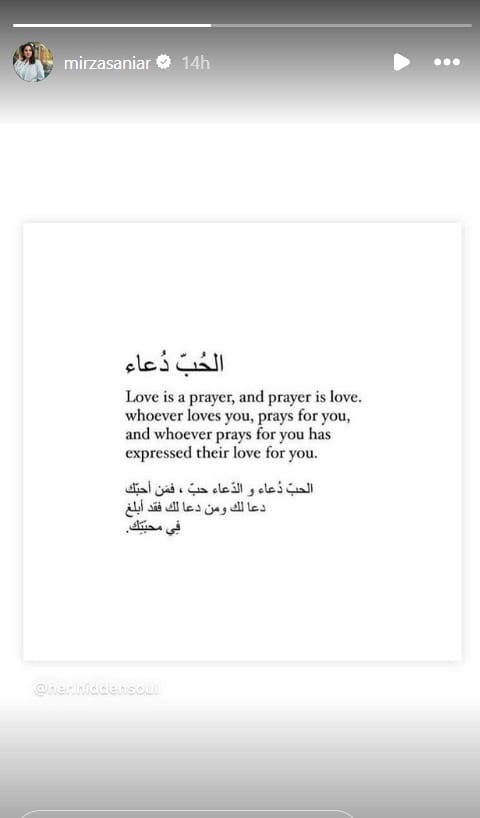 mirzasaniar 14h
الحُبّ دُعاء
Love is a prayer, and prayer is love.
whoever loves you, prays for you,
and whoever prays for you has
expressed their love for you.
الحبّ دُعاء و الدّعاء حبّ ، فمَن أحبّك
دعا لك ومن دعا لك فقد أبلغ
فِي محبّتِك.
@her.hiddensoul